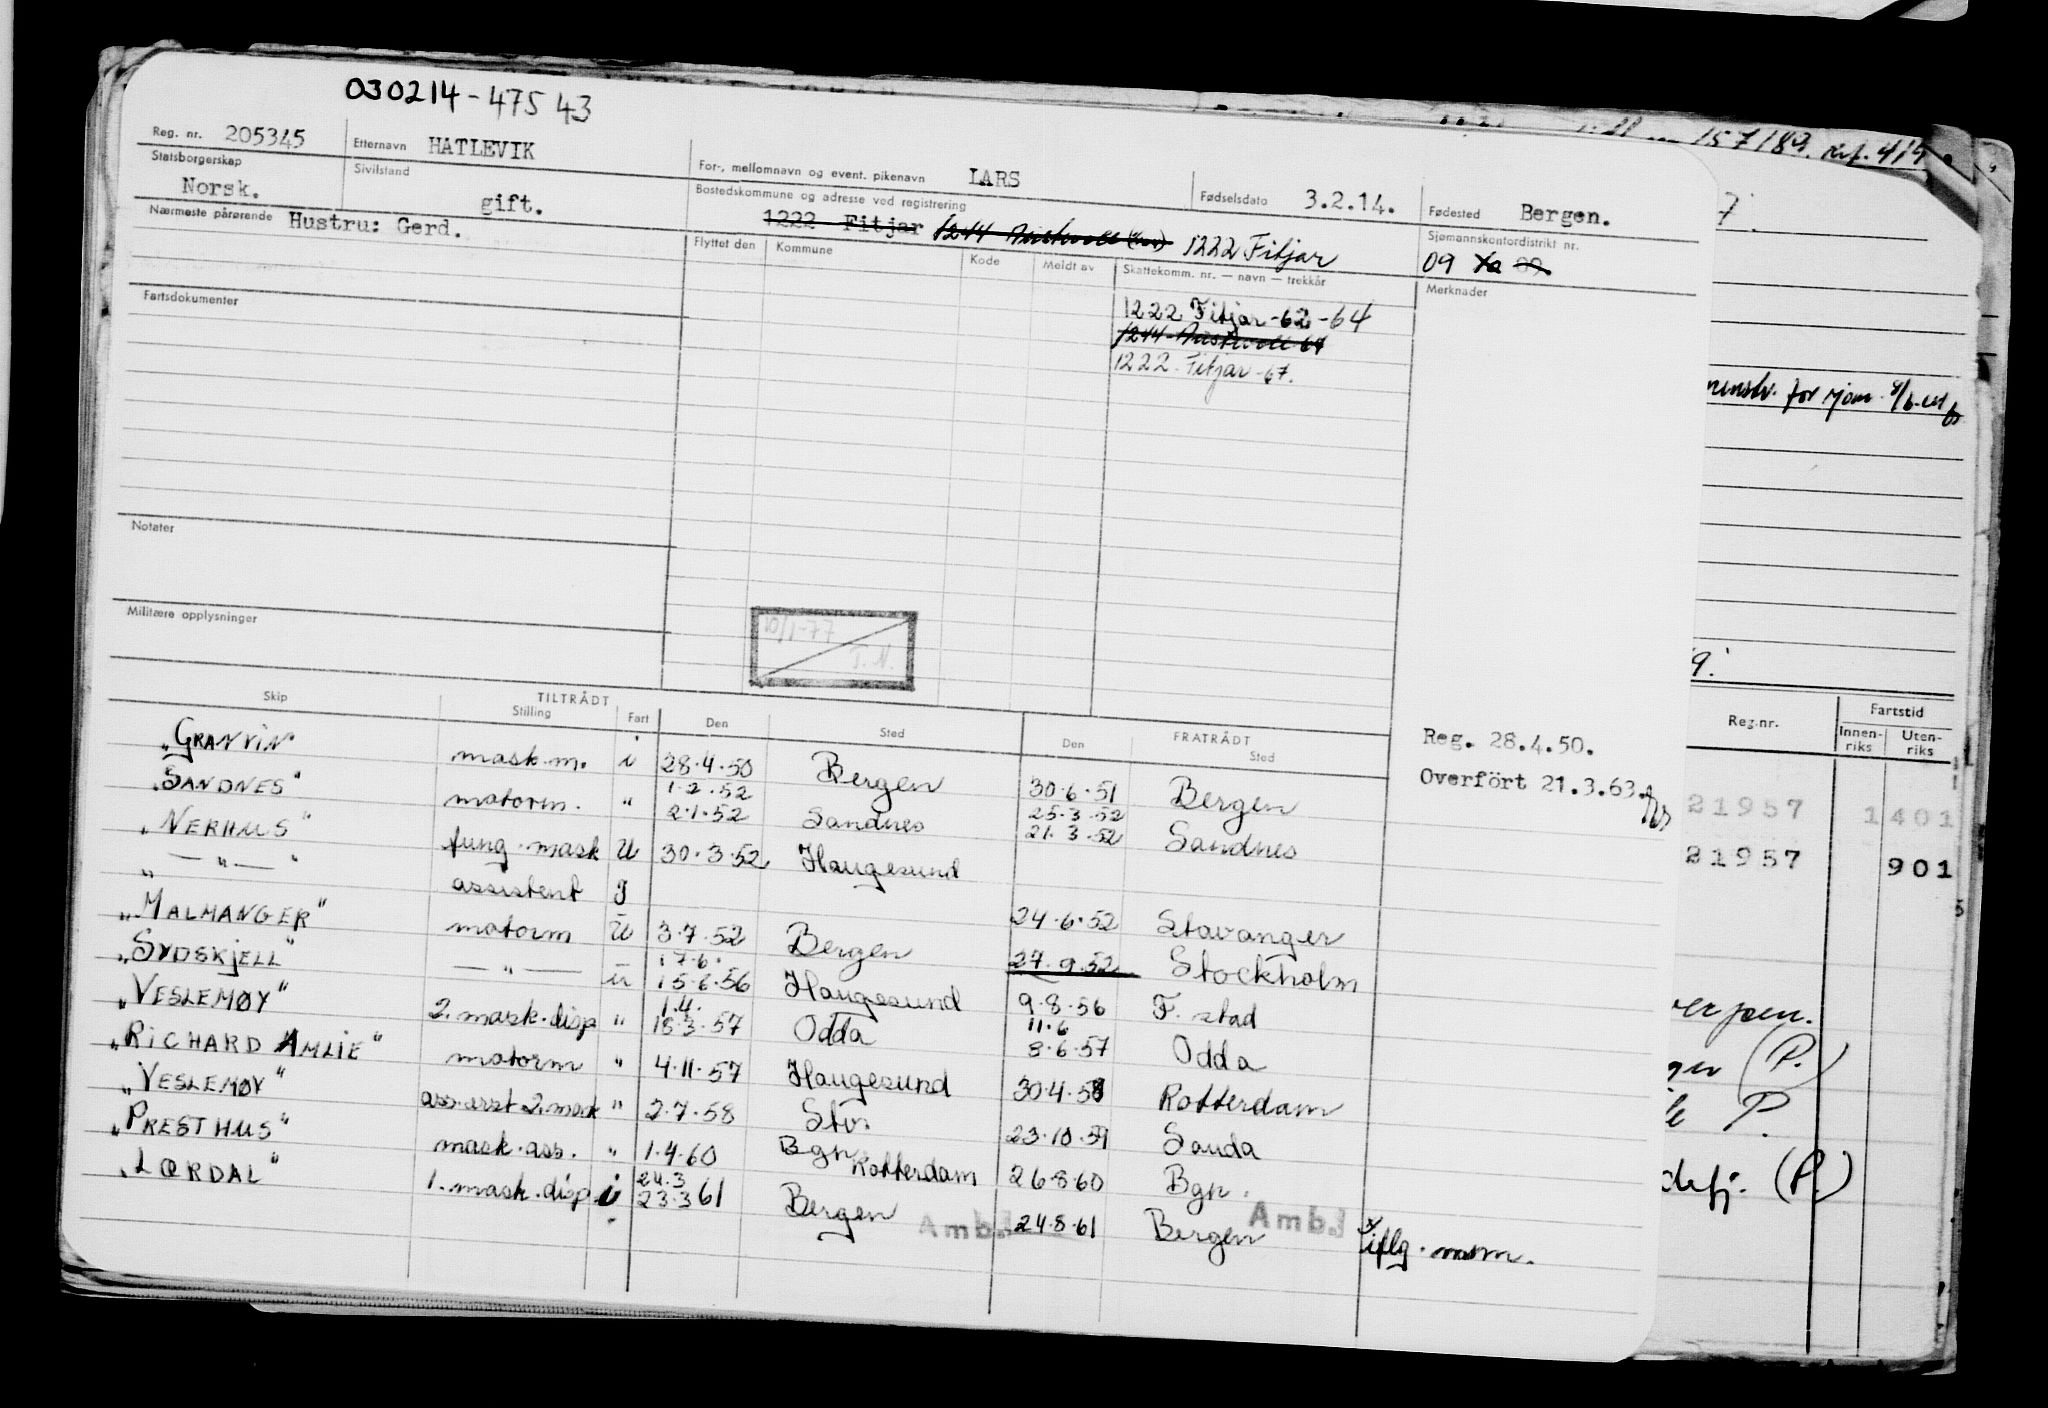 030214-47543
Reg. nr. 205345 Etternavn HATLEVIK For-, mellomnavn og event. pikenavn LARS Fødselsdato 3.2.14. Fødested Bergen.
Statsborgerskap Norsk. Sivilstand gift. Bostedskommune og adresse ved registrering 1222 Fitjar 1244 Austevoll 1222 Fitjar Sjømannskontordistrikt nr. 09
Nærmeste pårørende Hustru: Gerd.
Flyttet den Kommune Kode Meldt av Skattekomm. nr. — navn — trekkår Merknader
1222 Fitjar-62-64
1244-Austevoll-64
1222. Fitjar-67.
Fartsdokumenter
Notater
Militære opplysninger
Skip TILTRÅDT FRATRÅDT
Stilling Fart Den Sted Den Sted
Reg. 28.4.50.
Overfört 21.3.63.
"GRANVIN" mask.m. i 28.4.50 Bergen 30.6.51 Bergen
"SANDNES" motorm. " 1.2.52 2.1.52 Sandnes 25.3.52 21.3.52 Sandnes
"NERHUS" fung. mask U 30.3.52 Haugesund
" — " — " assistent g 24.6.52 Stavanger
"MALMANGER" motorm U 3.7.52 Bergen 27.9.52 Stockholm
"SYDSKJELL" — " — u 17.6. 15.6.56 Haugesund 9.8.56 F. stad
"VESLEMØY" 2. mask.disp " 1.4. 18.3.57 Odda 11.6 8.6.57 Odda
"RICHARD AMLIE" motorm " 4.11.57 Haugesund 30.4.58 Rotterdam
"VESLEMØY" ass. asst 2. mask " 2.7.58 Stv. 23.10.59 Sauda
"PRESTHUS" mask.ass. " 1.4.60 Bgn Rotterdam 26.8.60 Bgn.
"LÆRDAL" 1. mask.disp i 24.3 23.3 61 Bergen Amb. 24.8.61 Bergen Amb. x iflg. mem.
157/89.
7.
for
9!
Reg.nr. Fartstid
Innen-riks Uten-riks
21957 1401
21957 901
(P.)
P.
(P.)